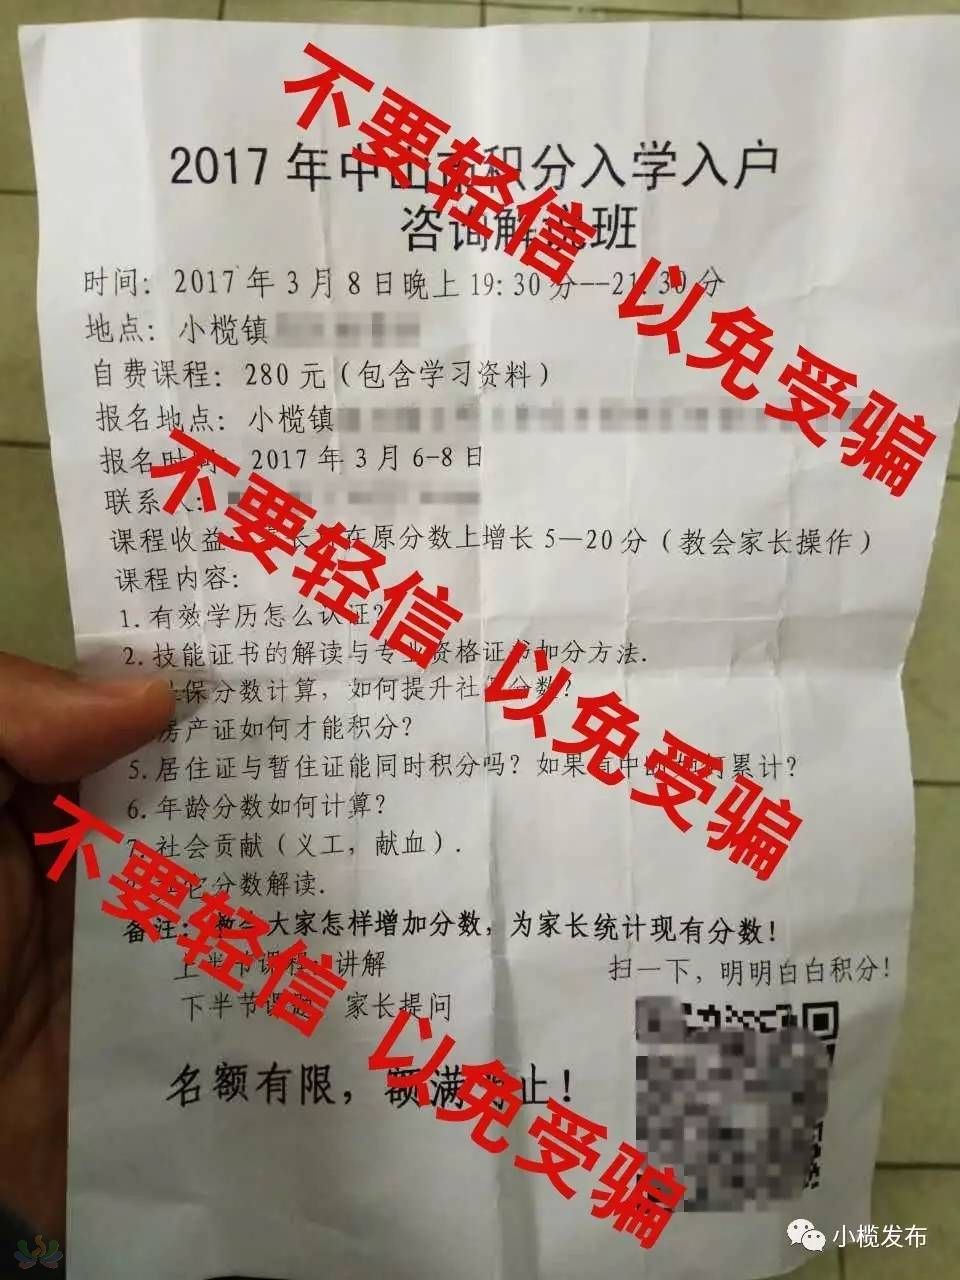 2017年中山市积分入学入户
咨询解说班
时间：2017年3月8日晚上19:30分--21:30分
地点：小榄镇
自费课程：280元（包含学习资料）
报名地点：小榄镇
报名时间：2017年3月6-8日
联系人：
课程收益：家长 在原分数上增长5—20分（教会家长操作）
课程内容：
1.有效学历怎么认证？
2.技能证书的解读与专业资格证书加分方法.
社保分数计算，如何提升社保分数？
房产证如何才能积分？
5.居住证与暂住证能同时积分吗？如果有中断如何累计？
6.年龄分数如何计算？
7.社会贡献（义工，献血）.
其它分数解读.
备注：教会大家怎样增加分数，为家长统计现有分数！
上半节课程 讲解
下半节课题 家长提问
扫一下，明明白白积分！
名额有限，额满为止！
不要轻信 以免受骗
不要轻信 以免受骗
不要轻信 以免受骗
小榄发布